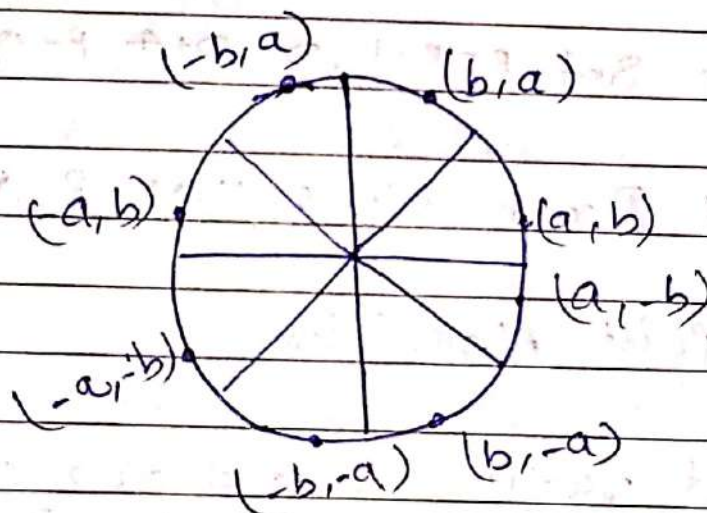 (-b, a)
(b, a)
(-a, b)
(a, b)
(a, -b)
(-a, -b)
(-b, -a)
(b, -a)